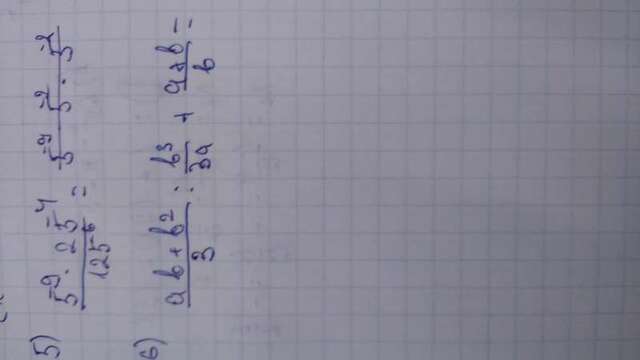 5) 5⁻⁹ · 25⁻⁴ / 125⁻⁶ = 5⁻⁹ 5⁻² · 5⁻²
6) ab + b² / 3 : b³ / 3a + a+b / b =